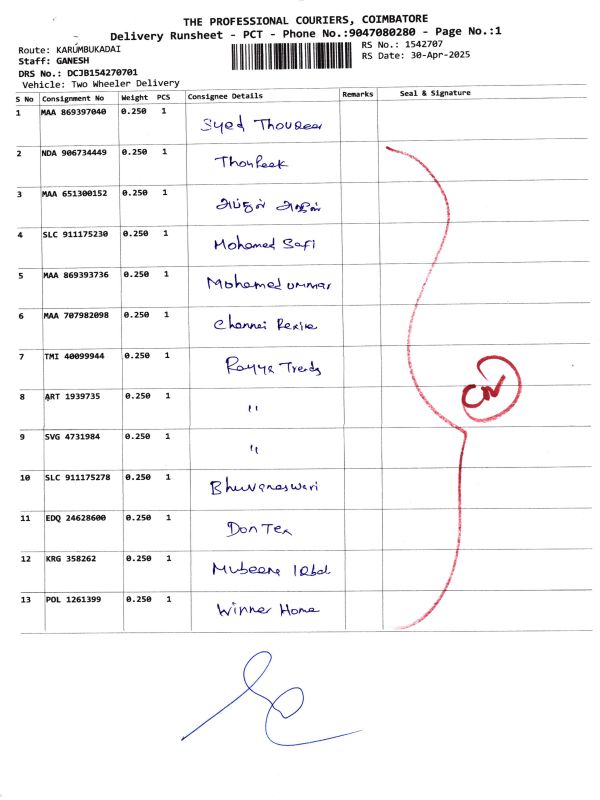 THE PROFESSIONAL COURIERS, COIMBATORE
Delivery Runsheet - PCT - Phone No.:9047080280 - Page No.:1
Route: KARUMBUKADAI
RS No.: 1542707
Staff: GANESH
RS Date: 30-Apr-2025
DRS No.: DCJB154270701
Vehicle: Two Wheeler Delivery
S No Consignment No Weight PCS Consignee Details Remarks Seal & Signature
1 MAA 869397040 0.250 1 Syed
2 NDA 906734449 0.250 1 Thoufeek
3 MAA 651300152 0.250 1
4 SLC 911175230 0.250 1 Mohamed Safi
5 MAA 869393736 0.250 1 Mohamed ummar
6 MAA 707982098 0.250 1 Chennai
7 TMI 40099944 0.250 1 Trends
8 ART 1939735 0.250 1 "
9 SVG 4731984 0.250 1 "
10 SLC 911175278 0.250 1 Bhuvaneswari
11 EDQ 24628600 0.250 1 Don Tex
12 KRG 358262 0.250 1 Mubeena Iqbal
13 POL 1261399 0.250 1 Winner Home